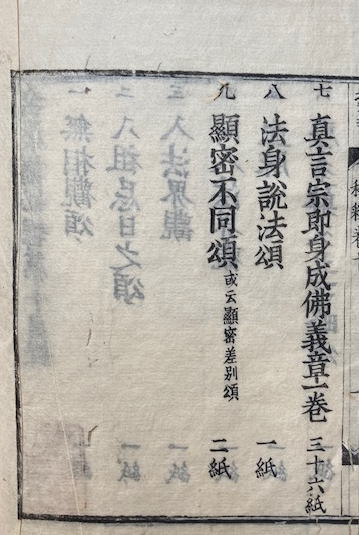 七 真言宗即身成佛義章一巻 三十六紙
八 法身說法頌 一紙
九 顯密不同頌 或云顯密差别頌 二紙